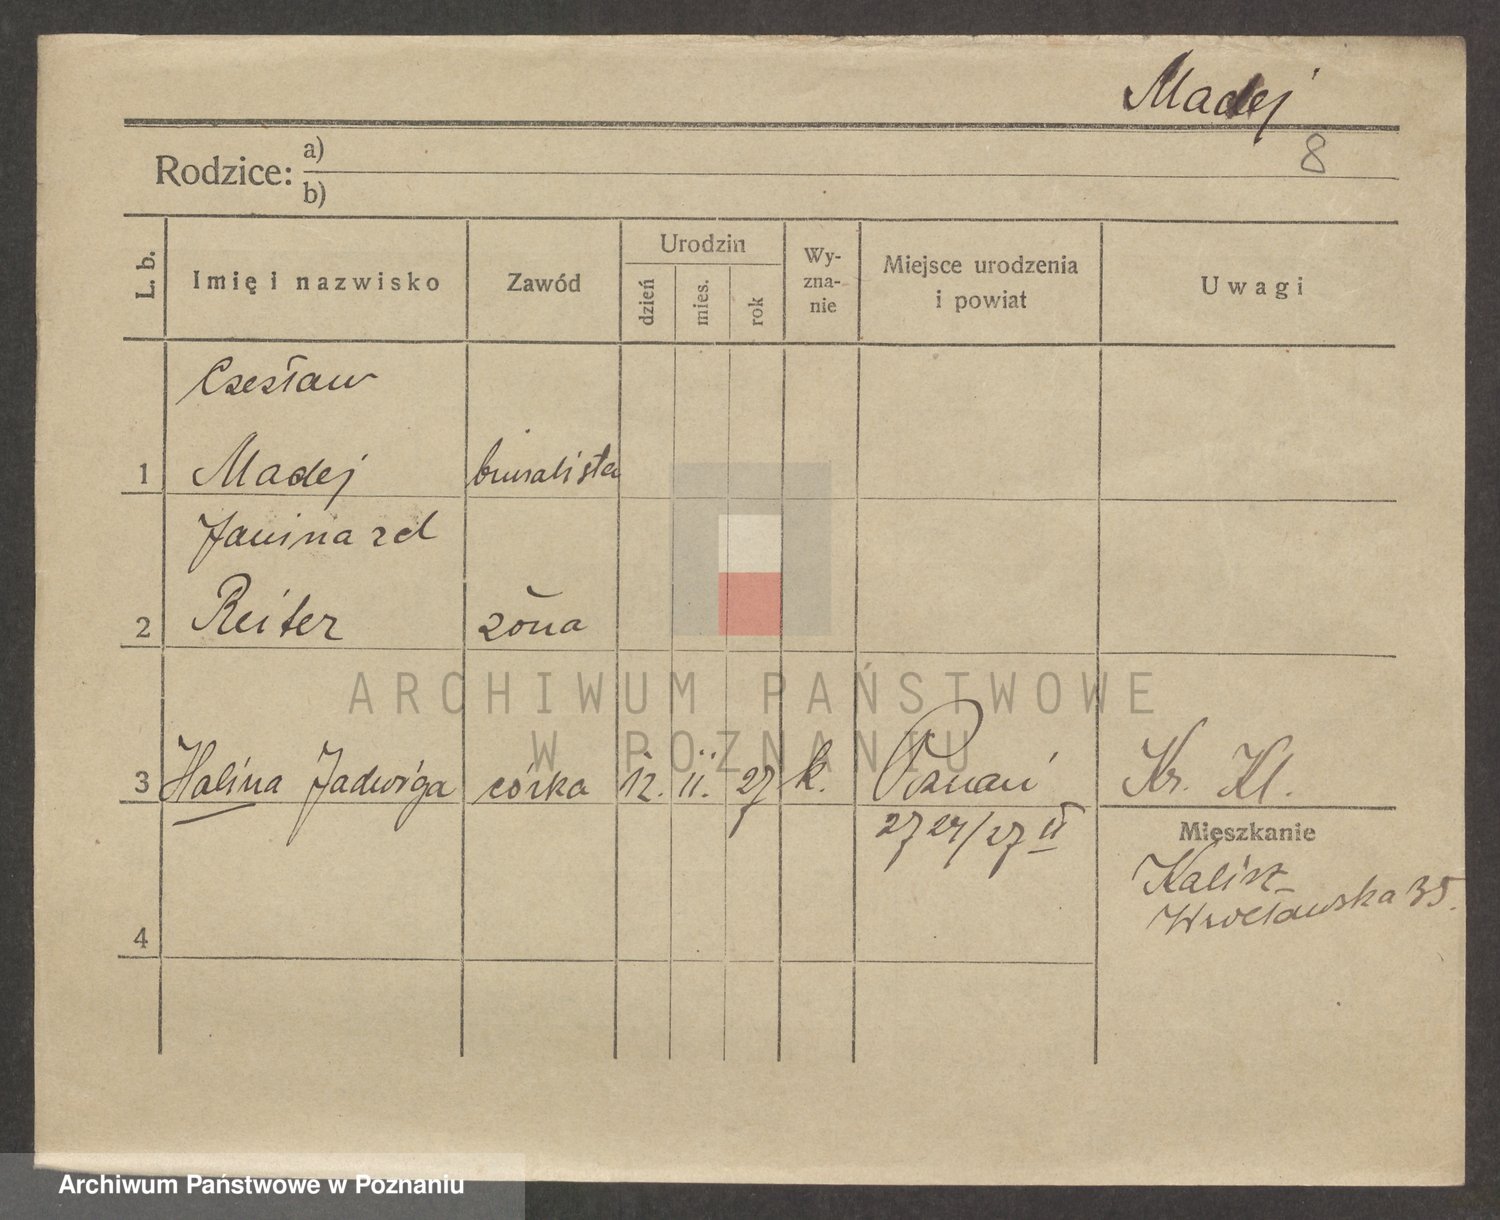 Madej
8
Rodzice: a)
b)
L. b.
Imię i nazwisko
Zawód
Urodzin
dzień
mies.
rok
Wy-
zna-
nie
Miejsce urodzenia
i powiat
Uwagi
Czesław
1 Madej biuralista
Janina zd
2 Reiter żona
ARCHIWUM PAŃSTWOWE
W POZNANIU
3 Halina Jadwiga córka 12. II. 27 k. Poznań Kr. Kl.
Mieszkanie
Kalisz
Wrocławska 35.
4
Archiwum Państwowe w Poznaniu